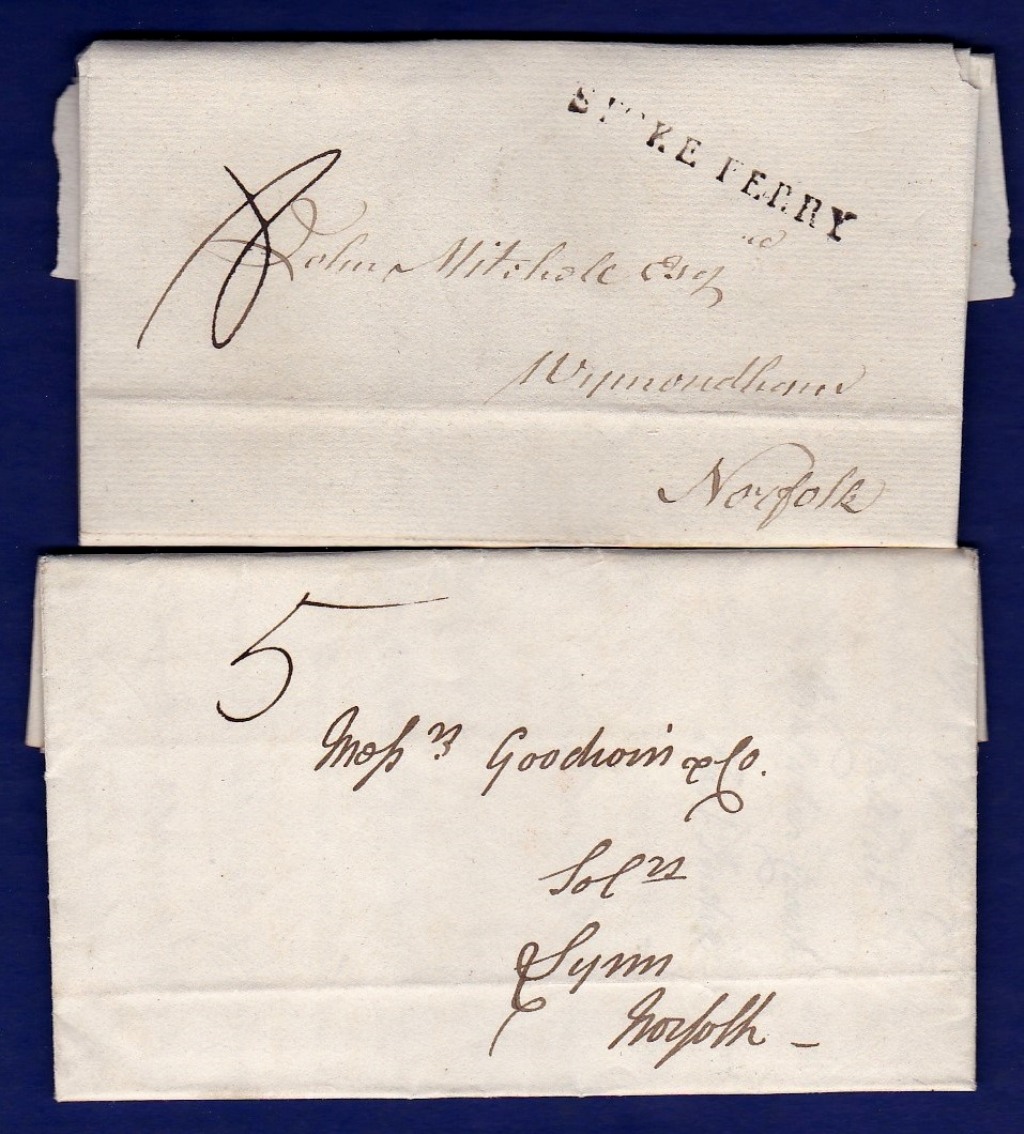 STOKE FERRY
8
John Mitchell Esq
Wymondham
Norfolk
5
Messrs Goodwin & Co.
Solrs
Lynn
Norfolk –